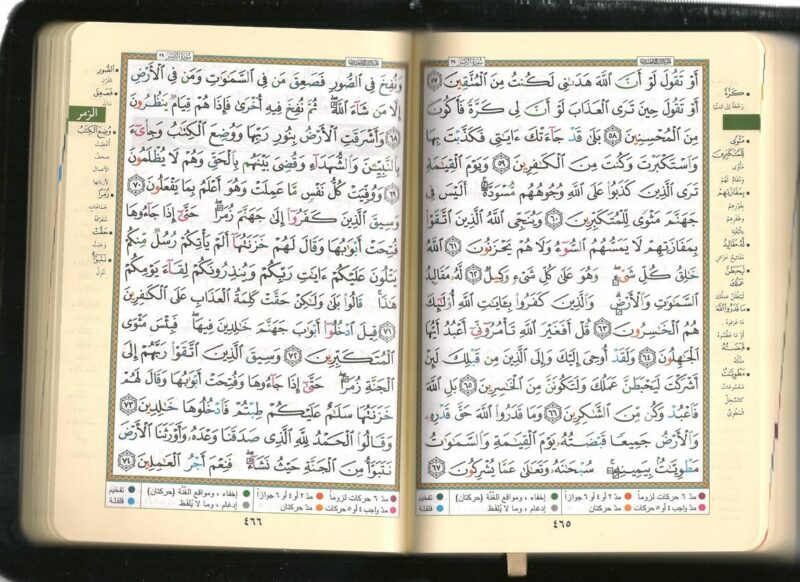 سُورَةُ الزُّمَرِ ٣٩
أَوْ تَقُولَ لَوْ أَنَّ ٱللَّهَ هَدَىٰنِى لَكُنتُ مِنَ ٱلْمُتَّقِينَ ٥٧
أَوْ تَقُولَ حِينَ تَرَى ٱلْعَذَابَ لَوْ أَنَّ لِى كَرَّةً فَأَكُونَ
مِنَ ٱلْمُحْسِنِينَ ٥٨ بَلَىٰ قَدْ جَآءَتْكَ ءَايَٰتِى فَكَذَّبْتَ بِهَا
وَٱسْتَكْبَرْتَ وَكُنتَ مِنَ ٱلْكَٰفِرِينَ ٥٩ وَيَوْمَ ٱلْقِيَٰمَةِ
تَرَى ٱلَّذِينَ كَذَبُوا۟ عَلَى ٱللَّهِ وُجُوهُهُم مُّسْوَدَّةٌ ۚ أَلَيْسَ فِى
جَهَنَّمَ مَثْوًى لِّلْمُتَكَبِّرِينَ ٦٠ وَيُنَجِّى ٱللَّهُ ٱلَّذِينَ ٱتَّقَوْا۟
بِمَفَازَتِهِمْ لَا يَمَسُّهُمُ ٱلسُّوٓءُ وَلَا هُمْ يَحْزَنُونَ ٦١ ٱللَّهُ
خَٰلِقُ كُلِّ شَىْءٍ ۖ وَهُوَ عَلَىٰ كُلِّ شَىْءٍ وَكِيلٌ ٦٢ لَّهُۥ مَقَالِيدُ
ٱلسَّمَٰوَٰتِ وَٱلْأَرْضِ ۗ وَٱلَّذِينَ كَفَرُوا۟ بِـَٔايَٰتِ ٱللَّهِ أُو۟لَٰٓئِكَ
هُمُ ٱلْخَٰسِرُونَ ٦٣ قُلْ أَفَغَيْرَ ٱللَّهِ تَأْمُرُوٓنِّىٓ أَعْبُدُ أَيُّهَا
ٱلْجَٰهِلُونَ ٦٤ وَلَقَدْ أُوحِىَ إِلَيْكَ وَإِلَى ٱلَّذِينَ مِن قَبْلِكَ لَئِنْ
أَشْرَكْتَ لَيَحْبَطَنَّ عَمَلُكَ وَلَتَكُونَنَّ مِنَ ٱلْخَٰسِرِينَ ٦٥ بَلِ ٱللَّهَ
فَٱعْبُدْ وَكُن مِّنَ ٱلشَّٰكِرِينَ ٦٦ وَمَا قَدَرُوا۟ ٱللَّهَ حَقَّ قَدْرِهِۦ
وَٱلْأَرْضُ جَمِيعًا قَبْضَتُهُۥ يَوْمَ ٱلْقِيَٰمَةِ وَٱلسَّمَٰوَٰتُ
مَطْوِيَّٰتٌۢ بِيَمِينِهِۦ ۚ سُبْحَٰنَهُۥ وَتَعَٰلَىٰ عَمَّا يُشْرِكُونَ ٦٧
كَرَّةً
رجعة إلى الدنيا
مَثْوًى
لِّلْمُتَكَبِّرِينَ
مأوى
ومقام لهم
بِمَفَازَتِهِمْ
بفوزهم
وظفرهم
بالبغية
لَهُ مَقَالِيدُ
مفاتيح خزائن
لَيَحْبَطَنَّ
عَمَلُكَ
ليبطلن عملك
مَا قَدَرُوا اللَّهَ
ما عرفوه. أو ما عظموه
قَبْضَتُهُ
ملكه
مَطْوِيَّاتٌ
مدّ ٦ حركات لزوماً مدّ ٢ أو ٤ أو ٦ جوازاً إخفاء، ومواقع الغُنَّة (حركتان) تفخيم
مدّ واجب ٤ أو ٥ حركات مدّ حركتان إدغام، وما لا يُلفَظ قلقلة
٤٦٥
سُورَةُ الزُّمَرِ ٣٩
وَنُفِخَ فِى ٱلصُّورِ فَصَعِقَ مَن فِى ٱلسَّمَٰوَٰتِ وَمَن فِى ٱلْأَرْضِ
إِلَّا مَن شَآءَ ٱللَّهُ ۖ ثُمَّ نُفِخَ فِيهِ أُخْرَىٰ فَإِذَا هُمْ قِيَامٌ يَنظُرُونَ
٦٨ وَأَشْرَقَتِ ٱلْأَرْضُ بِنُورِ رَبِّهَا وَوُضِعَ ٱلْكِتَٰبُ وَجِا۟ىٓءَ
بِٱلنَّبِيِّـۧنَ وَٱلشُّهَدَآءِ وَقُضِىَ بَيْنَهُم بِٱلْحَقِّ وَهُمْ لَا يُظْلَمُونَ
٦٩ وَوُفِّيَتْ كُلُّ نَفْسٍ مَّا عَمِلَتْ وَهُوَ أَعْلَمُ بِمَا يَفْعَلُونَ ٧٠
وَسِيقَ ٱلَّذِينَ كَفَرُوٓا۟ إِلَىٰ جَهَنَّمَ زُمَرًا ۖ حَتَّىٰٓ إِذَا جَآءُوهَا
فُتِحَتْ أَبْوَٰبُهَا وَقَالَ لَهُمْ خَزَنَتُهَآ أَلَمْ يَأْتِكُمْ رُسُلٌ مِّنكُمْ
يَتْلُونَ عَلَيْكُمْ ءَايَٰتِ رَبِّكُمْ وَيُنذِرُونَكُمْ لِقَآءَ يَوْمِكُمْ
هَٰذَا ۚ قَالُوا۟ بَلَىٰ وَلَٰكِنْ حَقَّتْ كَلِمَةُ ٱلْعَذَابِ عَلَى ٱلْكَٰفِرِينَ
٧١ قِيلَ ٱدْخُلُوٓا۟ أَبْوَٰبَ جَهَنَّمَ خَٰلِدِينَ فِيهَا ۖ فَبِئْسَ مَثْوَى
ٱلْمُتَكَبِّرِينَ ٧٢ وَسِيقَ ٱلَّذِينَ ٱتَّقَوْا۟ رَبَّهُمْ إِلَى
ٱلْجَنَّةِ زُمَرًا ۖ حَتَّىٰٓ إِذَا جَآءُوهَا وَفُتِحَتْ أَبْوَٰبُهَا وَقَالَ لَهُمْ
خَزَنَتُهَا سَلَٰمٌ عَلَيْكُمْ طِبْتُمْ فَٱدْخُلُوهَا خَٰلِدِينَ ٧٣
وَقَالُوا۟ ٱلْحَمْدُ لِلَّهِ ٱلَّذِى صَدَقَنَا وَعْدَهُۥ وَأَوْرَثَنَا ٱلْأَرْضَ
نَتَبَوَّأُ مِنَ ٱلْجَنَّةِ حَيْثُ نَشَآءُ ۖ فَنِعْمَ أَجْرُ ٱلْعَٰمِلِينَ ٧٤
الصُّورِ
القرن
فَصَعِقَ
مات
الزمر
وُضِعَ الْكِتَابُ
أعطيت
صحف
الأعمال
لأربابها
زُمَرًا
جماعات
متفرقة
حَقَّتْ
وجبت
نَتَبَوَّأُ
ننزل
مدّ ٦ حركات لزوماً مدّ ٢ أو ٤ أو ٦ جوازاً إخفاء، ومواقع الغُنَّة (حركتان) تفخيم
مدّ واجب ٤ أو ٥ حركات مدّ حركتان إدغام، وما لا يُلفَظ قلقلة
٤٦٦